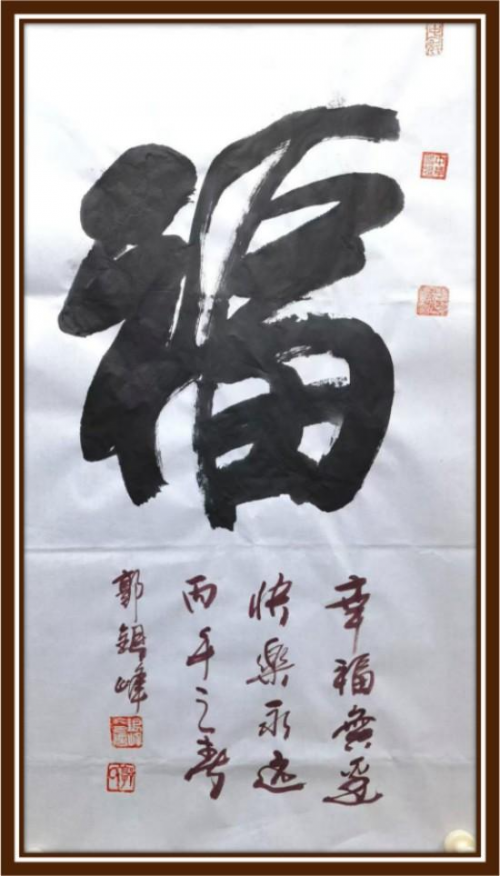 福
幸福無邊
快樂永遠
丙午之春
郭銀峰